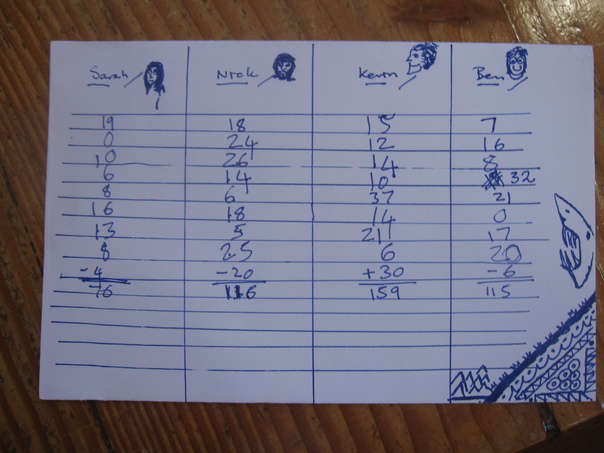 Sarah Nick Kevin Ben
19 18 15 7
0 24 12 16
10 26 14 8
6 14 10 32
8 6 37 21
16 18 14 0
13 5 21 17
8 25 6 20
-4 -20 +30 -6
76 116 159 115